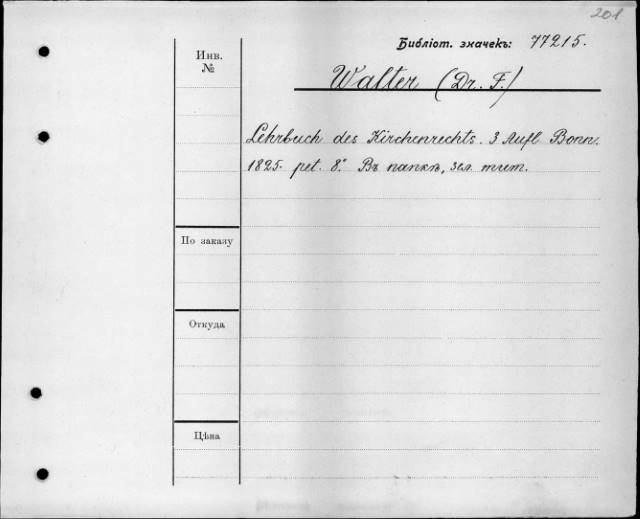 201
Библіот. значекъ: 77215.
Инв.
№
Walter (Dr. F.)
Lehrbuch des Kirchenrechts. 3 Aufl Bonn.
1825. pet. 8.° Въ папкѣ, зел. тит.
По заказу
Откуда
Цѣна